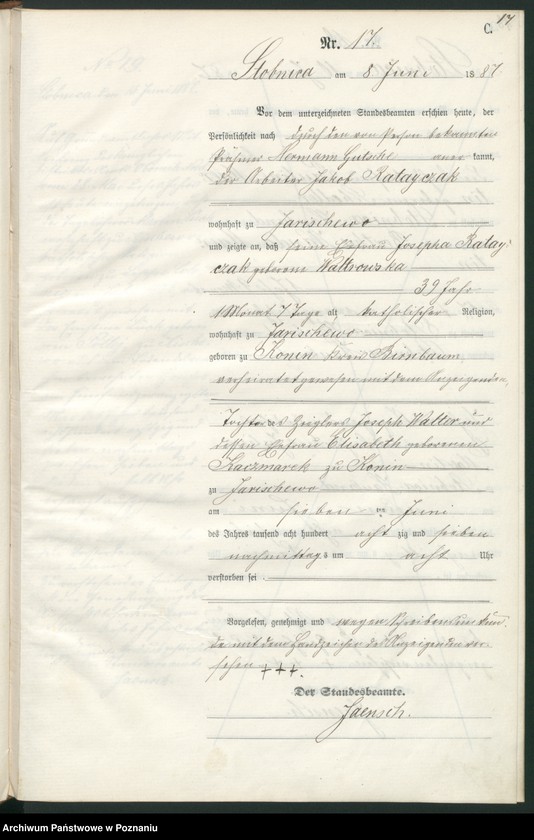 17
C.
Nr. 17.
Slobnica am 8 Juni 1887
Vor dem unterzeichneten Standesbeamten erschien heute, der
Persönlichkeit nach durch den von Person bekannten
Hermann Gutsche aner kannt,
der Arbeiter Jakob Ratayczak
wohnhaft zu Jarischewo
und zeigte an, daß seine Ehefrau Josepha Ratay-
czak geborene Waltrowska
39 Jahr
1 Monat 7 Tage alt, katholischer Religion,
wohnhaft zu Jarischewo
geboren zu Konin Kreis Birnbaum,
verheiratet gewesen mit dem Anzeigenden,
Tochter des Zieglers Joseph Walter und
dessen Ehefrau Elisabeth geborenen
Kaczmarek zu Konin
zu Jarischewo
am sieben ten Juni
des Jahres tausend acht hundert acht zig und sieben
nachmittags um acht Uhr
verstorben sei
Vorgelesen, genehmigt und wegen Schreibensunkun-
de mit dem Handzeichen des Anzeigenden ver-
sehen +++.
Der Standesbeamte.
Jaensch.
Archiwum Państwowe w Poznaniu